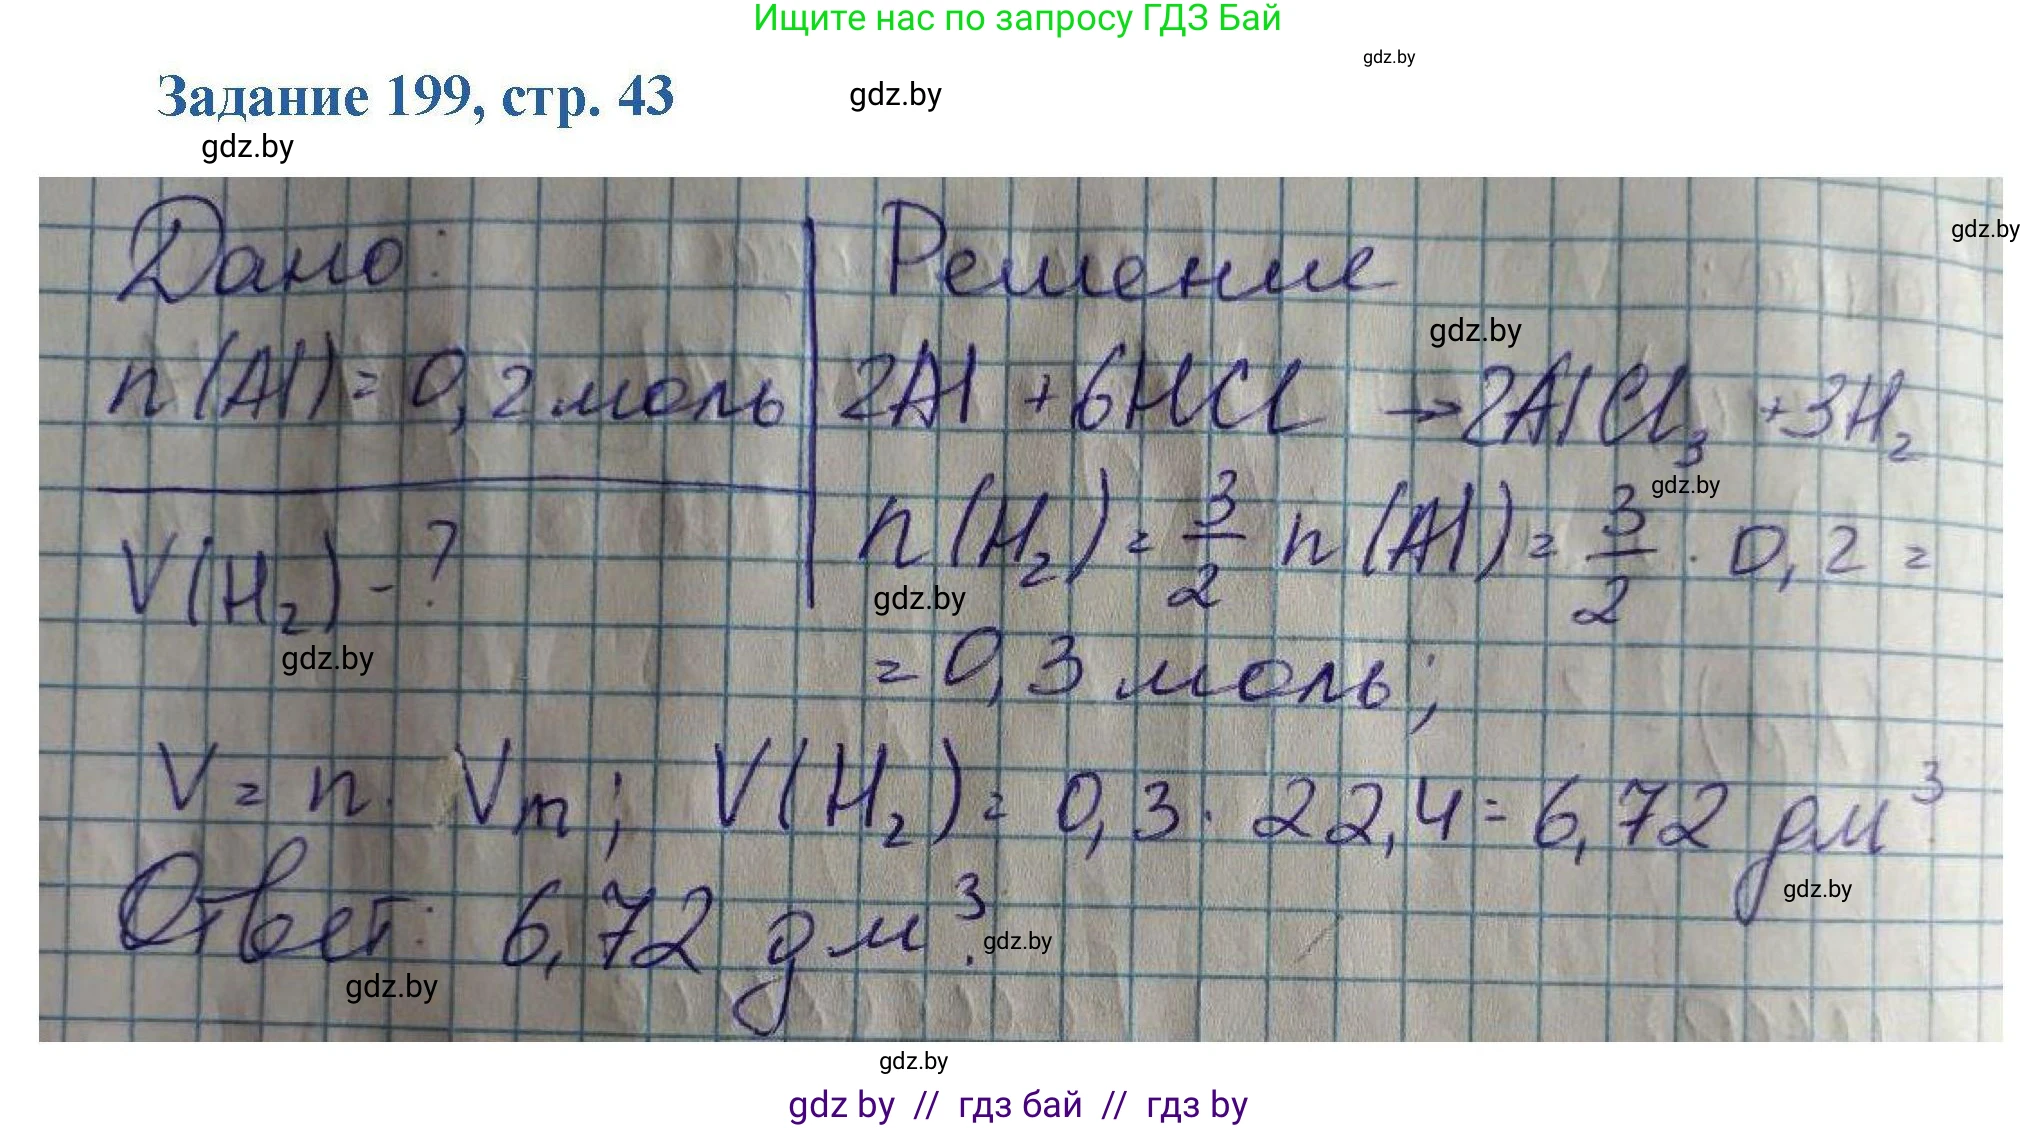 Ищите нас по запросу ГДЗ Бай
gdz.by
Задание 199, стр. 43
gdz.by
gdz.by
Дано:
Решение
gdz.by
n(Al) = 0,2 моль
gdz.by
2Al + 6HCl → 2AlCl₃ + 3H₂
gdz.by
V(H₂) - ?
n(H₂) = 3/2 n(Al) = 3/2 · 0,2 =
gdz.by
gdz.by
= 0,3 моль;
V = n · Vm; V(H₂) = 0,3 · 22,4 = 6,72 дм³
gdz.by
Ответ: 6,72 дм³.
gdz.by
gdz.by
gdz.by
gdz by // гдз бай // гдз by